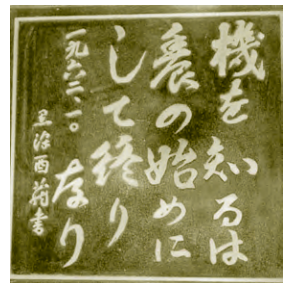 機を知るは
農の始めに
して終り
なり
一九六二、一〇
黒沢酉蔵書